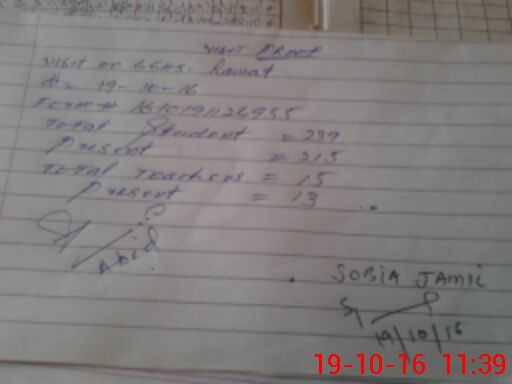 visit PRoof
visit on GGHS. Rawat.
dt= 19-10-16
Form # 1610191124955
Total Student = 239
Present = 215
Total Teachers = 15
Present = 13
Abid
SOBIA JAMIL
19/10/16
19-10-16 11:39